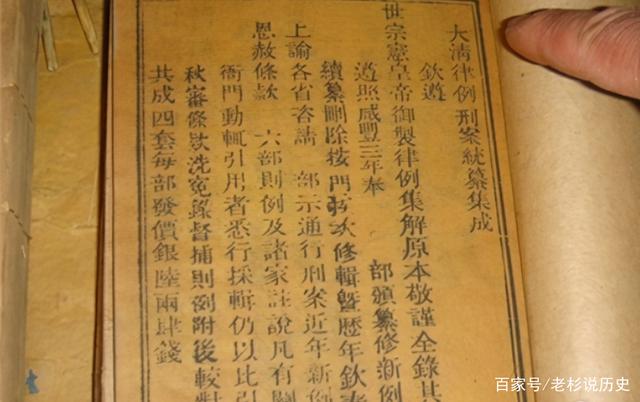 大清律例刑案統纂集成
欽遵
世宗憲皇帝御製律例集解原本敬謹全錄其
遵照咸豐三年奉　部頒纂修新例
續纂刪除按門挨次修輯暨歷年欽奉
上諭各省咨請　部示通行刑案近年新例
恩赦條款　六部則例及諸家註說凡有關
衙門動輒引用者悉行採輯仍以比引
秋審條款洗冤錄督捕則例附後較對
共成四套每部發價銀陸兩肆錢
百家号/老杉说历史